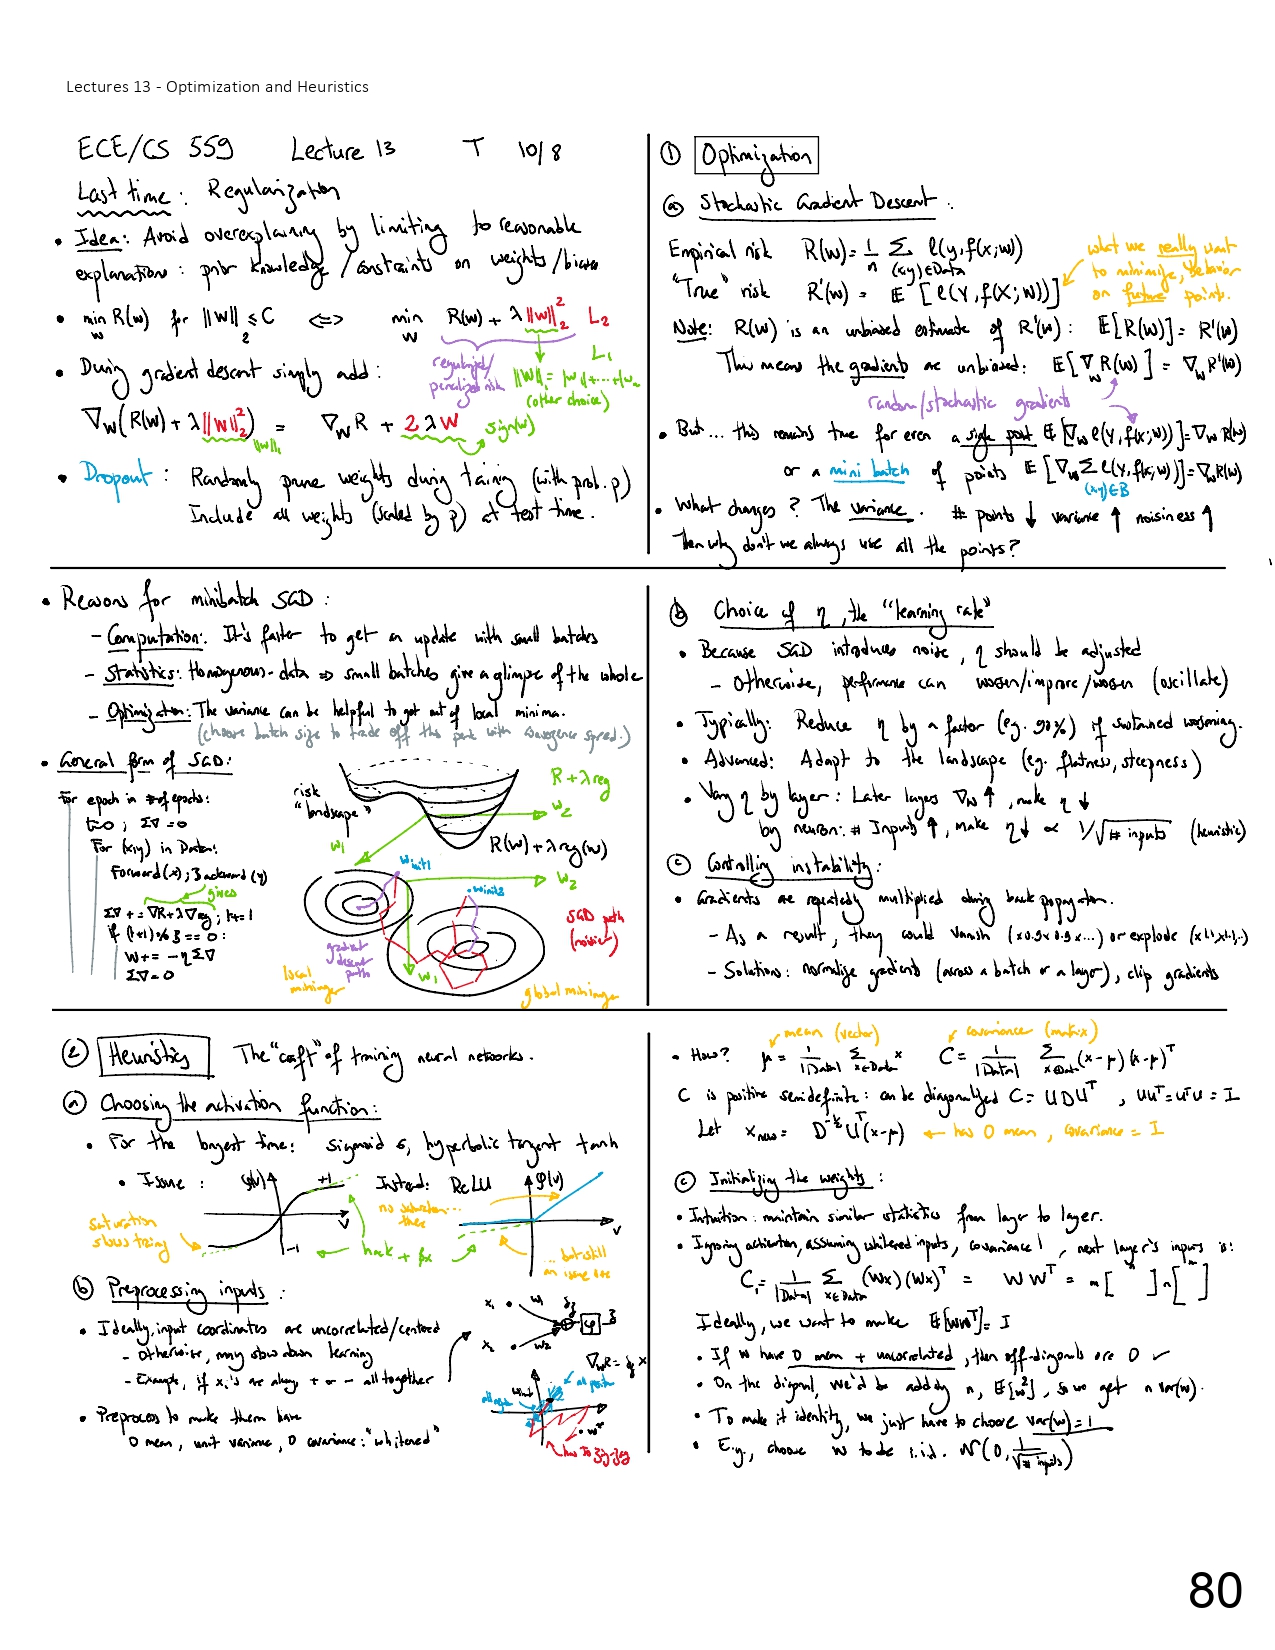 Lectures 13 - Optimization and Heuristics
ECE/CS 559 Lecture 13 T 10/8
Last time: Regularization
• Idea: Avoid overexplaining by limiting to reasonable
explanations: prior knowledge/constraints on weights/biases
• min_W R(w) for ||w||_2 ≤ C <=> min_W R(w) + λ||w||_2^2 L2
regularized/
penalized risk
L1
||W||_1 = |w_1|+...+|w_n|
(other choice)
• During gradient descent simply add:
∇_W(R(w) + λ||w||_2^2) = ∇_W R + 2λW
||w||_1
sign(w)
• Dropout: Randomly prune weights during training (with prob. p)
Include all weights (scaled by p) at test time.
① Optimization
ⓐ Stochastic Gradient Descent:
Empirical risk R(w) = 1/n Σ_{(x,y)∈Data} l(y, f(x;w))
"True" risk R'(w) = E[l(Y, f(X;w))]
what we really want
to minimize, behavior
on future points.
Note: R(w) is an unbiased estimate of R'(w): E[R(w)] = R'(w)
This means the gradients are unbiased: E[∇_W R(w)] = ∇_W R'(w)
random/stochastic gradients
• But... this remains true for even a single point E[∇_W l(Y, f(x;w))] = ∇_W R(w)
or a mini batch of points E[∇_W Σ_{(x,y)∈B} l(Y, f(x;w))] = ∇_W R(w)
• What changes? The variance. # points ↓ variance ↑ noisiness ↑
Then why don't we always use all the points?
• Reasons for minibatch SGD:
– Computation: It's faster to get an update with small batches
– Statistics: Homogenous-data => small batches give a glimpse of the whole
– Optimization: The variance can be helpful to get out of local minima.
(choose batch size to trade off this perk with convergence speed.)
• General form of SGD:
For epoch in # of epochs:
t=0; Σ∇=0
For (x,y) in Data:
Forward(x); Backward(y)
gives
Σ∇ += ∇R+λ∇reg; t+=1
if (t+1)%B == 0:
W += -ηΣ∇
Σ∇=0
risk
"landscape"
R + λreg
w2
w1
R(w) + λreg(w)
winit1
w2
winit2
SGD path
(noisier)
gradient
descent
paths
w1
local
minimizer
global minimizer
ⓑ Choice of η, the "learning rate"
• Because SGD introduces noise, η should be adjusted
– Otherwise, performance can worsen/improve/worsen (oscillate)
• Typically: Reduce η by a factor (eg. 90%) if sustained worsening.
• Advanced: Adapt to the landscape (eg. flatness, steepness)
• Vary η by layer: Later layers ∇_W ↑, make η ↓
by neuron: # Inputs ↑, make η↓ ∝ 1/√# inputs (heuristic)
ⓒ Controlling instability:
• Gradients are repeatedly multiplied during backpropagation.
– As a result, they could vanish (x0.9x0.9x...) or explode (x1.1x1.1..)
– Solutions: normalize gradient (across a batch or a layer), clip gradients
② Heuristics The "craft" of training neural networks.
ⓐ Choosing the activation function:
• For the longest time: sigmoid σ, hyperbolic tangent tanh
• Issue: φ(v) +1 Instead: ReLU φ(v)
v
-1
saturation
slows training
no saturation...
there
hack + fix
v
... but still
an issue here
ⓑ Preprocessing inputs:
• Ideally, input coordinates are uncorrelated/centered
– Otherwise, may slow down learning
– Example, if xi's are always + or – all together
x1 w1
x2 w2
φ
∇_W R = x
all positive
winit
w*
has to zig-zag
• Preprocess to make them have
0 mean, unit variance, 0 covariance: "whitened"
mean (vector) covariance (matrix)
• How? μ = 1/|Data| Σ_{x∈Data} x C = 1/|Data| Σ_{x∈Data} (x-μ)(x-μ)^T
C is positive semidefinite: can be diagonalized C = UDU^T, UU^T = U^TU = I
Let x_new = D^{-1/2} U^T(x-μ) ← has 0 mean, covariance = I
ⓒ Initializing the weights:
• Intuition: maintain similar statistics from layer to layer.
• Ignoring activation, assuming whitened inputs, covariance 1, next layer's inputs is:
C_1 = 1/|Data| Σ_{x∈Data} (Wx)(Wx)^T = WW^T = m[ n ] n[ m ]
Ideally, we want to make E[WW^T] = I
• If W have 0 mean + uncorrelated, then off-diagonals are 0 ✓
• On the diagonal, we'd be adding n, E[w^2], so we get n var(w).
• To make it identity, we just have to choose var(w) = 1
• E.g., choose W to be i.i.d. N(0, 1/√# inputs)
80